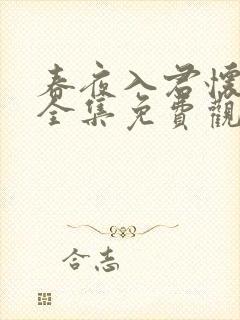 春夜入君懷
全集免費觀
合志